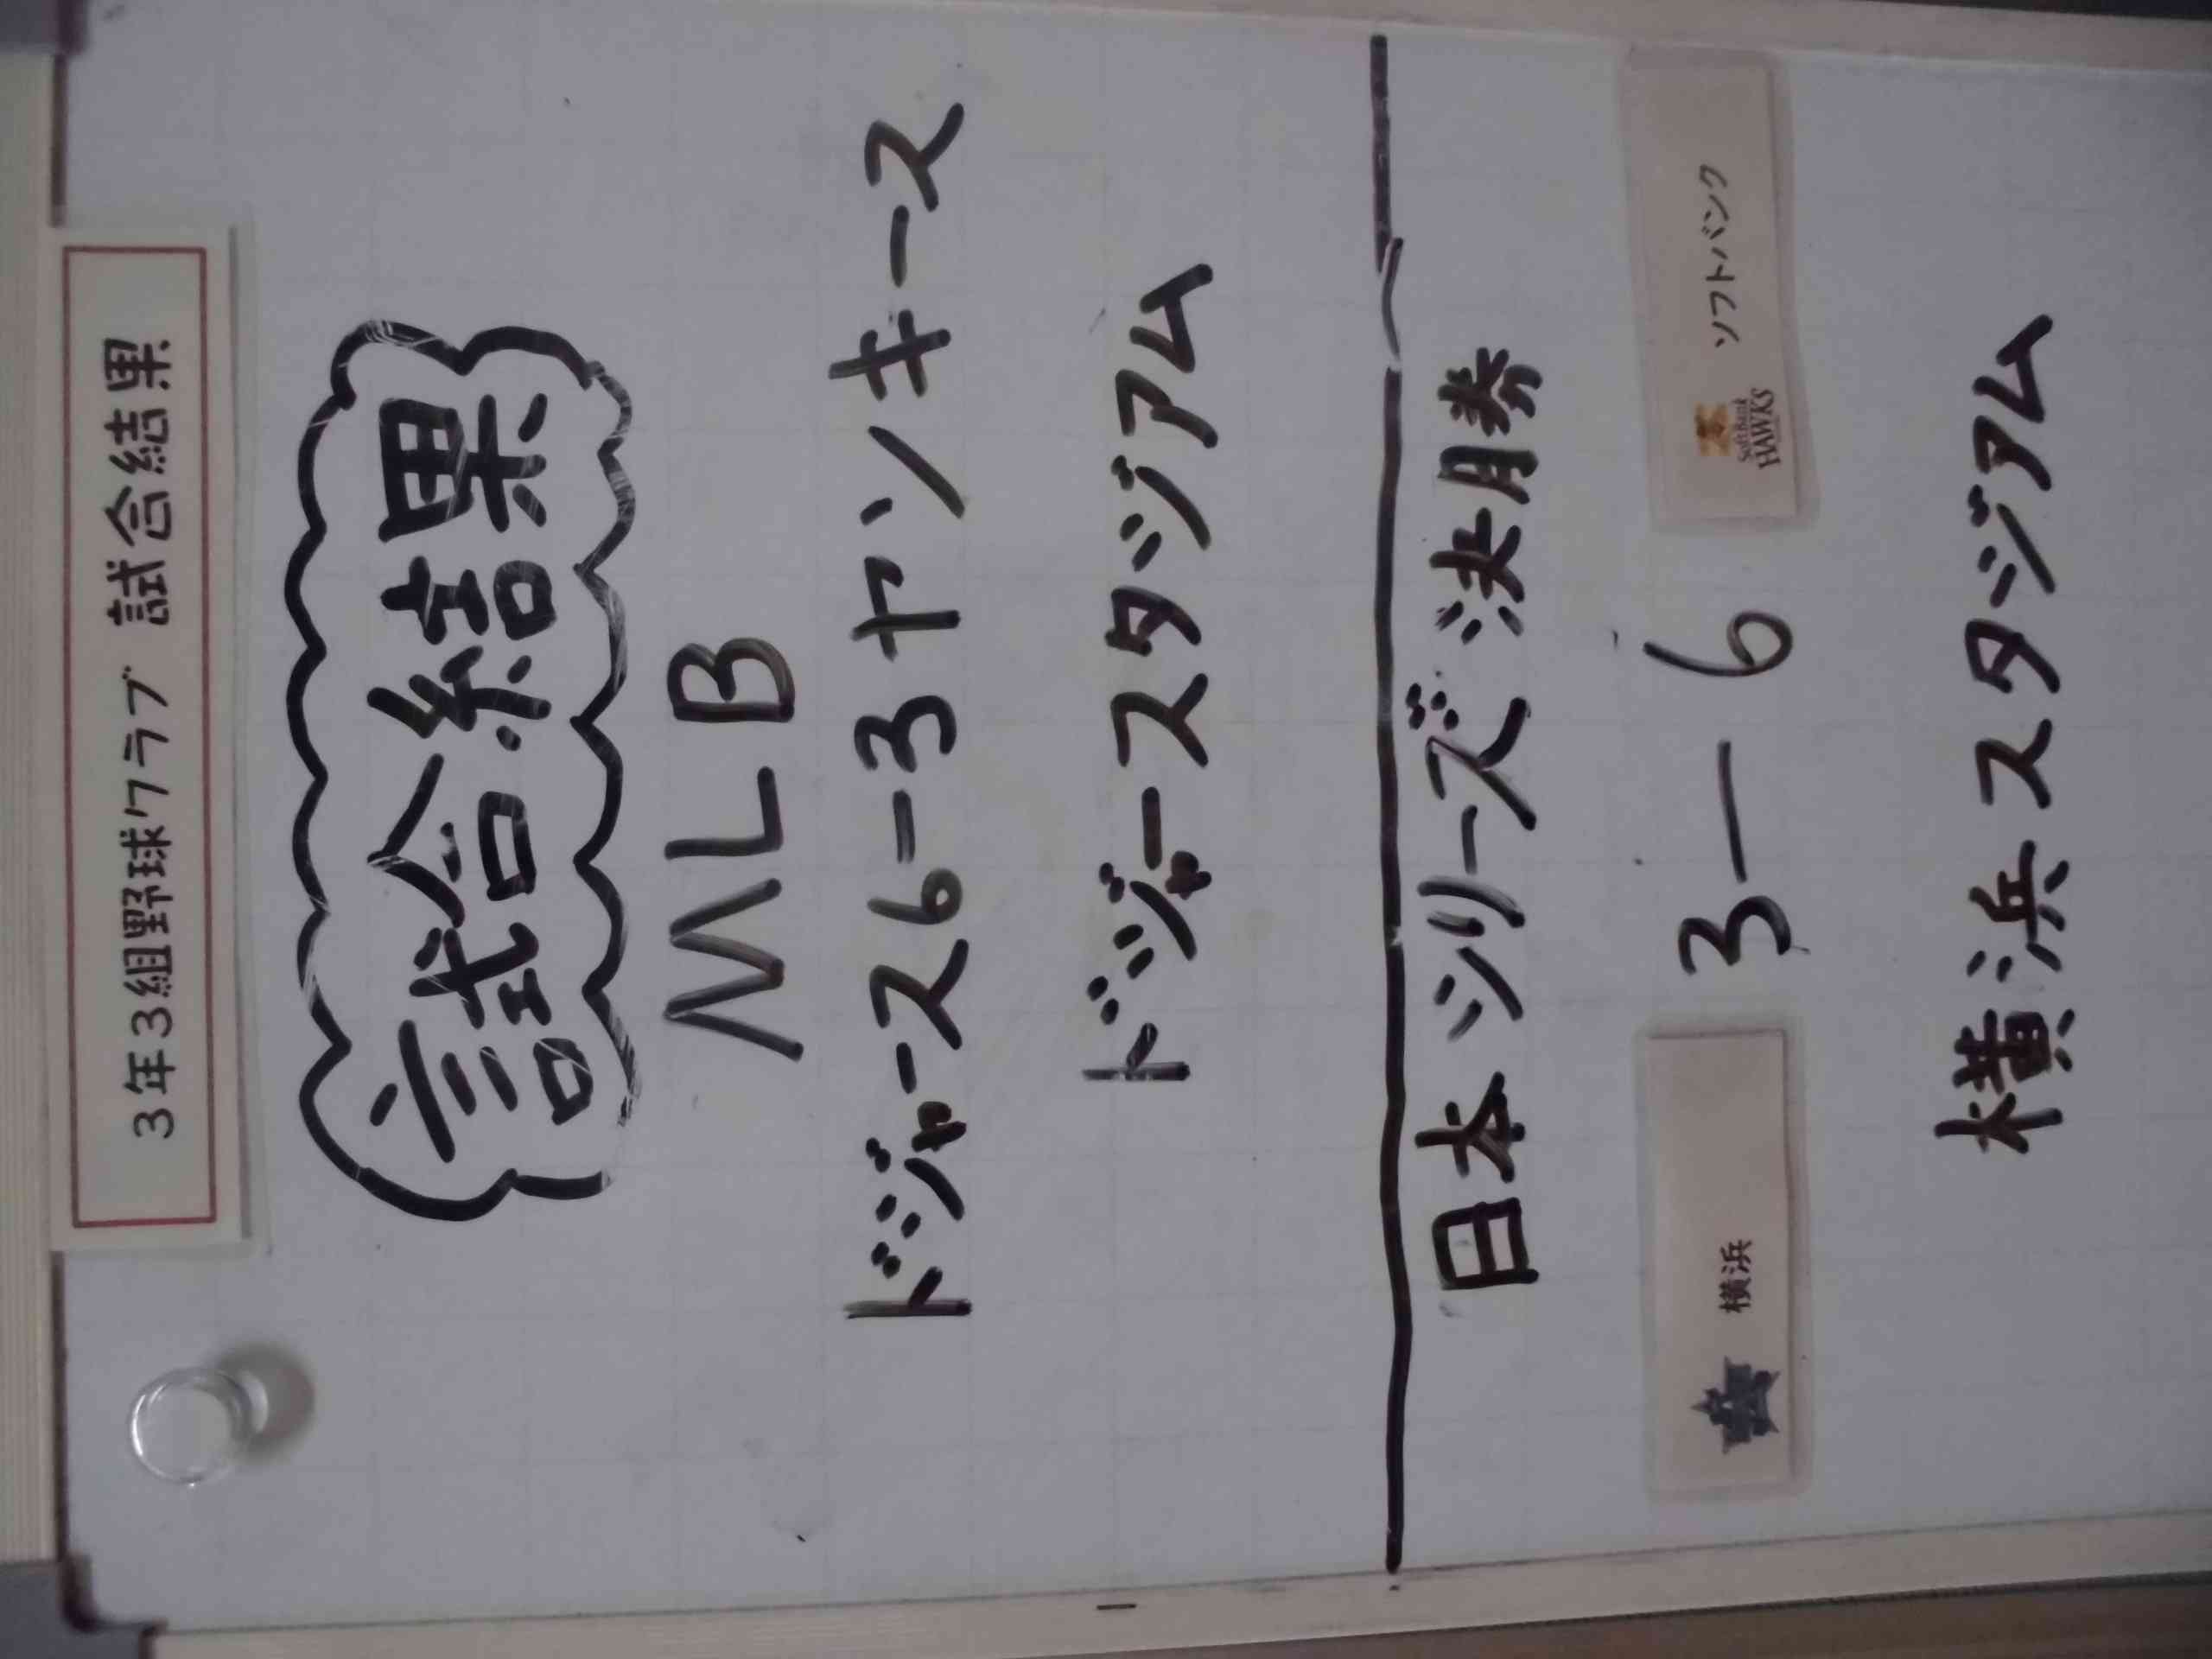 3年3組野球クラブ 試合結果
試合結果
MLB
ドジャース6-3ヤンキース
ドジャースタジアム
日本シリーズ 決勝
横浜 3-6 SoftBank HAWKS ソフトバンク
横浜スタジアム